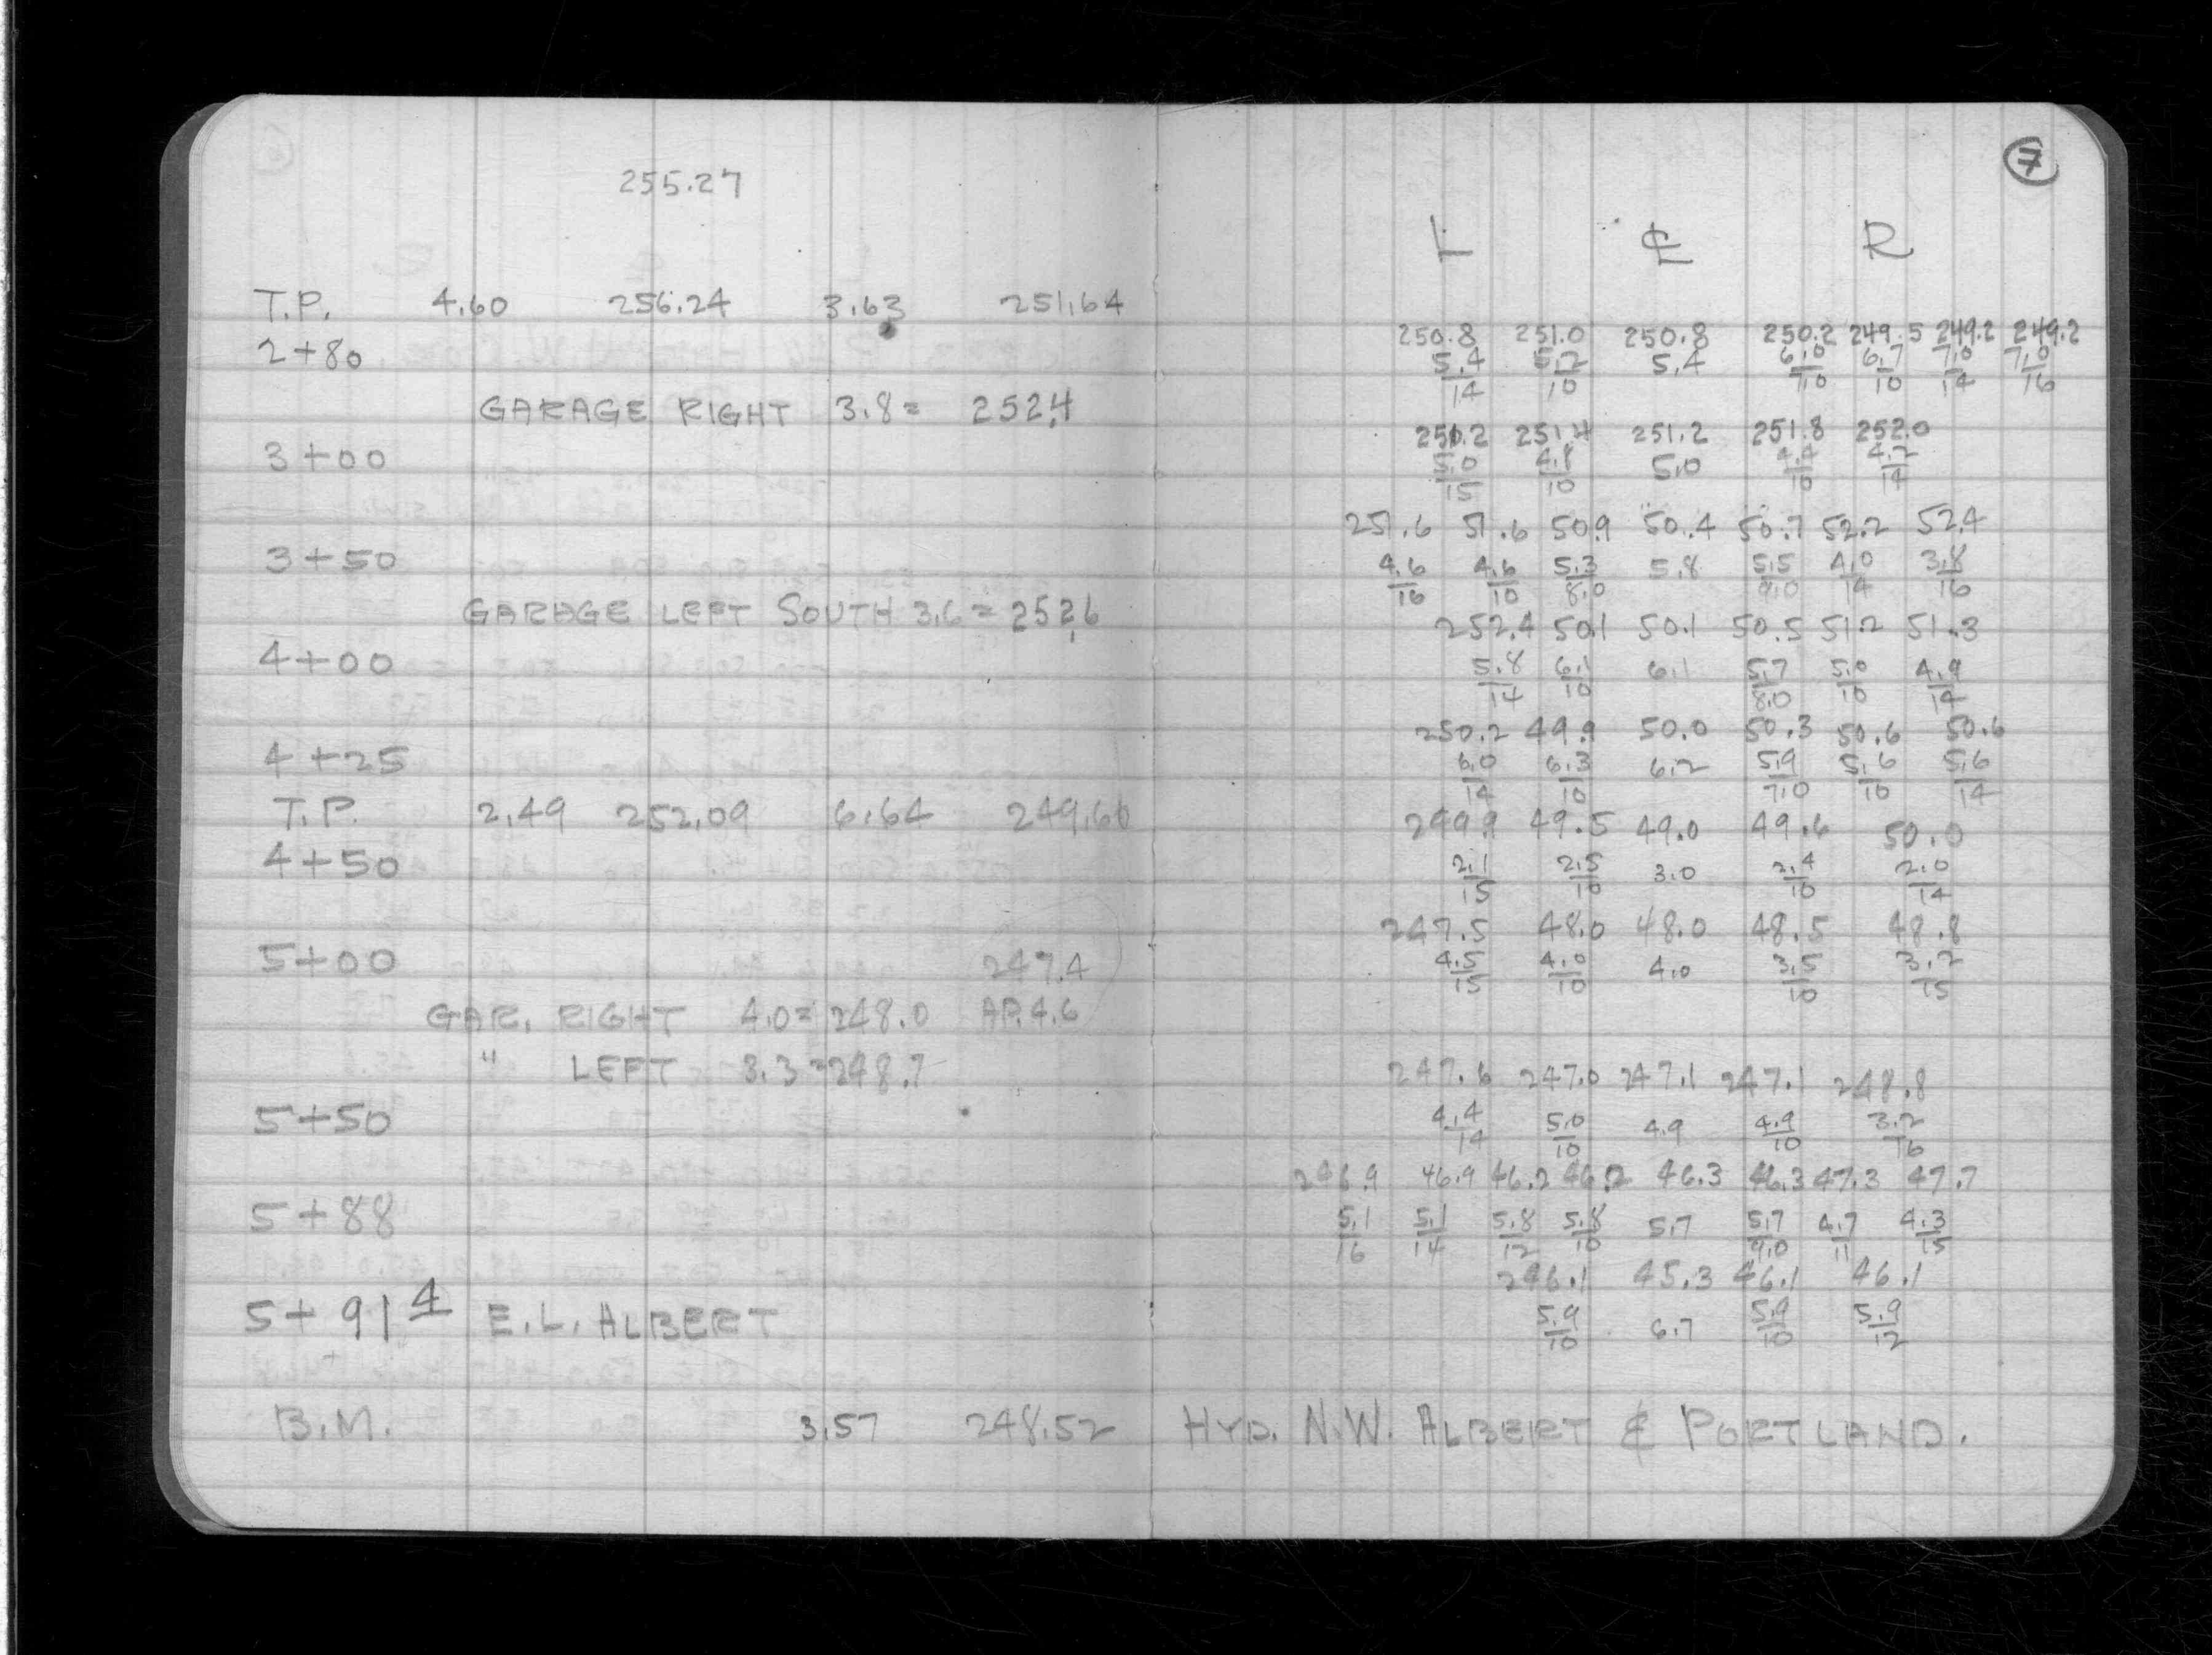 7
255.27
L ℄ R
T.P. 4.60 256.24 3.63 251.64
250.8 251.0 250.8 250.2 249.5 249.2 249.2
2+80 5.4/14 5.2/10 5.4 6.0/10 6.7/10 7.0/14 7.0/16
GARAGE RIGHT 3.8 = 252.4
251.4 251.2 251.8 252.0
3+00 5.0/15 4.8/10 5.0 4.4/10 4.2/14
251.6 51.6 50.9 50.4 50.7 52.2 52.4
3+50 4.6/16 4.6/10 5.3/8.0 5.8 5.5/8.0 4.0/14 3.8/16
GARAGE LEFT SOUTH 3.6 = 252.6
252.4 50.1 50.1 50.5 51.2 51.3
4+00 5.8/14 6.1/10 6.1 5.7/8.0 5.0/10 4.9/14
250.2 49.9 50.0 50.3 50.6 50.6
4+25 6.0/14 6.3/10 6.2 5.9/7.0 5.6/10 5.6/14
T.P. 2.49 252.09 6.64 249.60
249.9 49.5 49.0 49.6 50.0
4+50 2.1/15 2.5/10 3.0 2.4/10 2.0/14
247.5 48.0 48.0 48.5 48.8
5+00 247.4 4.5/15 4.0/10 4.0 3.5/10 3.2/15
GAR. RIGHT 4.0 = 248.0 AP. 4.6
" LEFT 3.3 = 248.7
247.6 247.0 247.1 247.1 248.8
5+50 4.4/14 5.0/10 4.9 4.9/10 3.2/16
246.9 46.9 46.2 46.2 46.3 46.3 47.3 47.7
5+88 5.1/16 5.1/14 5.8/12 5.8/10 5.7 5.7/9.0 4.7/11 4.3/15
246.1 45.3 46.1 46.1
5+91 4 E.L. ALBERT 5.9/10 6.7 5.9/10 5.9/12
B.M. 3.57 248.52 HYD. N.W. ALBERT & PORTLAND.